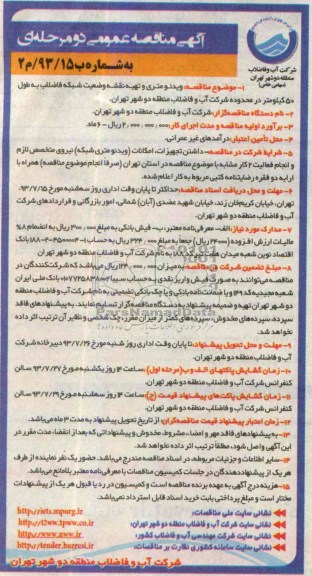 آگهی مناقصه عمومی دو مرحله‌ای
به شماره ب/۹۳/۱۵/م۲
شرکت آب و فاضلاب
منطقه دو شهر تهران
(سهامی خاص)
۱- موضوع مناقصه: ویدئو متری و تهیه نقشه وضعیت شبکه فاضلاب به طول
۵۰ کیلومتر در محدوده شرکت آب و فاضلاب منطقه دو شهر تهران.
۲- نام دستگاه مناقصه‌گزار: شرکت آب و فاضلاب منطقه دو شهر تهران.
۳- برآورد اولیه مناقصه و مدت اجرای کار: ۲،۰۰۰،۰۰۰،۰۰۰ ریال - ۶ ماه.
۴- محل تأمین اعتبار: درآمدهای غیر عمرانی.
۵- شرایط شرکت در مناقصه: داشتن تجهیزات، امکانات (ویدئو متری شبکه) نیروی متخصص لازم
و انجام فعالیت ۲ کار مشابه با موضوع مناقصه در استان تهران (صرفا انجام موضوع مناقصه) همراه با
ارایه دو فقره رضایتنامه کتبی مربوط به کار اعلام شده.
۶- مهلت و محل دریافت اسناد مناقصه: حداکثر تا پایان وقت اداری روز سه‌شنبه مورخ ۹۳/۷/۱۵
تهران، خیابان کریم‌خان زند، خیابان شهید عضدی (آبان) شمالی، امور بازرگانی و قراردادهای شرکت
آب و فاضلاب منطقه دو شهر تهران.
۷- مدارک مورد نیاز: الف- معرفی‌نامه معتبر، ب- فیش بانکی به مبلغ ۳۰۰،۰۰۰ ریال به انضمام ۸٪
مالیات ارزش افزوده (۲۴،۰۰۰ ریال) جمعا به مبلغ ۳۲۴،۰۰۰ ریال به حساب
اقتصاد نوین شعبه میدان هفت تیر کد ۱۸۸ به نام شرکت آب و فاضلاب منطقه دو شهر تهران
۸- مبلغ تضمین شرکت در مناقصه: به میزان ریال می‌باشد که شرکت‌کنندگان در
مناقصه می‌توانند به صورت فیش واریز نقدی به حساب سیبا بانک ملی ایران
شعبه مجیدیه کد و یا ضمانت‌نامه بانکی و یا چک بانکی تضمینی به نام شرکت آب و فاضلاب منطقه
دو شهر تهران تهیه و ضمیمه پیشنهاد به دستگاه مناقصه‌گزار تسلیم نمایند. به پیشنهادهای فاقد
سپرده، سپرده‌های مخدوش، سپرده‌های کمتر از میزان مقرر، چک شخصی و نظایر آن ترتیب اثر داده
نخواهد شد.
۹- مهلت و محل تحویل پیشنهاد: تا پایان وقت اداری روز شنبه مورخ ۹۳/۷/۲۶ دبیرخانه شرکت
آب و فاضلاب منطقه دو شهر تهران.
۱۰- زمان گشایش پاکتهای الف و ب (مرحله اول): ساعت ۱۴ روز یکشنبه مورخ ۹۳/۷/۲۷ سالن
کنفرانس شرکت آب و فاضلاب منطقه دو شهر تهران.
۱۱- زمان گشایش پاکتهای پیشنهاد قیمت (ج): ساعت ۱۴ روز سه‌شنبه مورخ ۹۳/۷/۲۹ سالن
کنفرانس شرکت آب و فاضلاب منطقه دو شهر تهران.
۱۲- زمان اعتبار پیشنهاد قیمت مناقصه‌گران: از تاریخ تحویل پیشنهاد به مدت ۳ ماه می‌باشد.
۱۳- به پیشنهادهای فاقد مهر و امضاء، مشروط، مخدوش و پیشنهاداتی که بعد از انقضاء مدت مقرر در
این آگهی واصل شود، مطلقا ترتیب اثر داده نخواهد شد.
۱۴- سایر اطلاعات و جزئیات مربوطه، در اسناد مناقصه مندرج می‌باشد. حضور یک نفر نماینده از طرف
هر یک از پیشنهاددهندگان در جلسات کمیسیون مناقصات با معرفی‌نامه معتبر بلامانع می‌باشد.
۱۵- هزینه درج آگهی به عهده برنده مناقصه است و کمیسیون در رد یا قبول هر یک از پیشنهادات
مختار است و مبلغ پرداختی بابت خرید اسناد قابل استرداد نمی‌باشد.
نشانی سایت ملی مناقصات: http://iets.mporg.ir
نشانی سایت شرکت آب و فاضلاب منطقه دو شهر تهران: http://t2ww.tpww.co.ir
نشانی سایت شرکت مهندسی آب و فاضلاب کشور: http://www.nww.ir
نشانی سایت سامانه کشوری نظارت بر مناقصات: http://tender.bazresi.ir
شرکت آب و فاضلاب منطقه دو شهر تهران
ParsNamadData